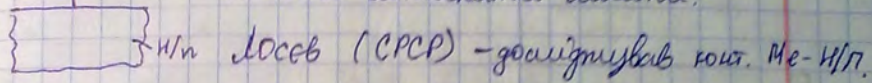 н/п Лосєв (СРСР) - досліджував конт. Ме-Н/П.